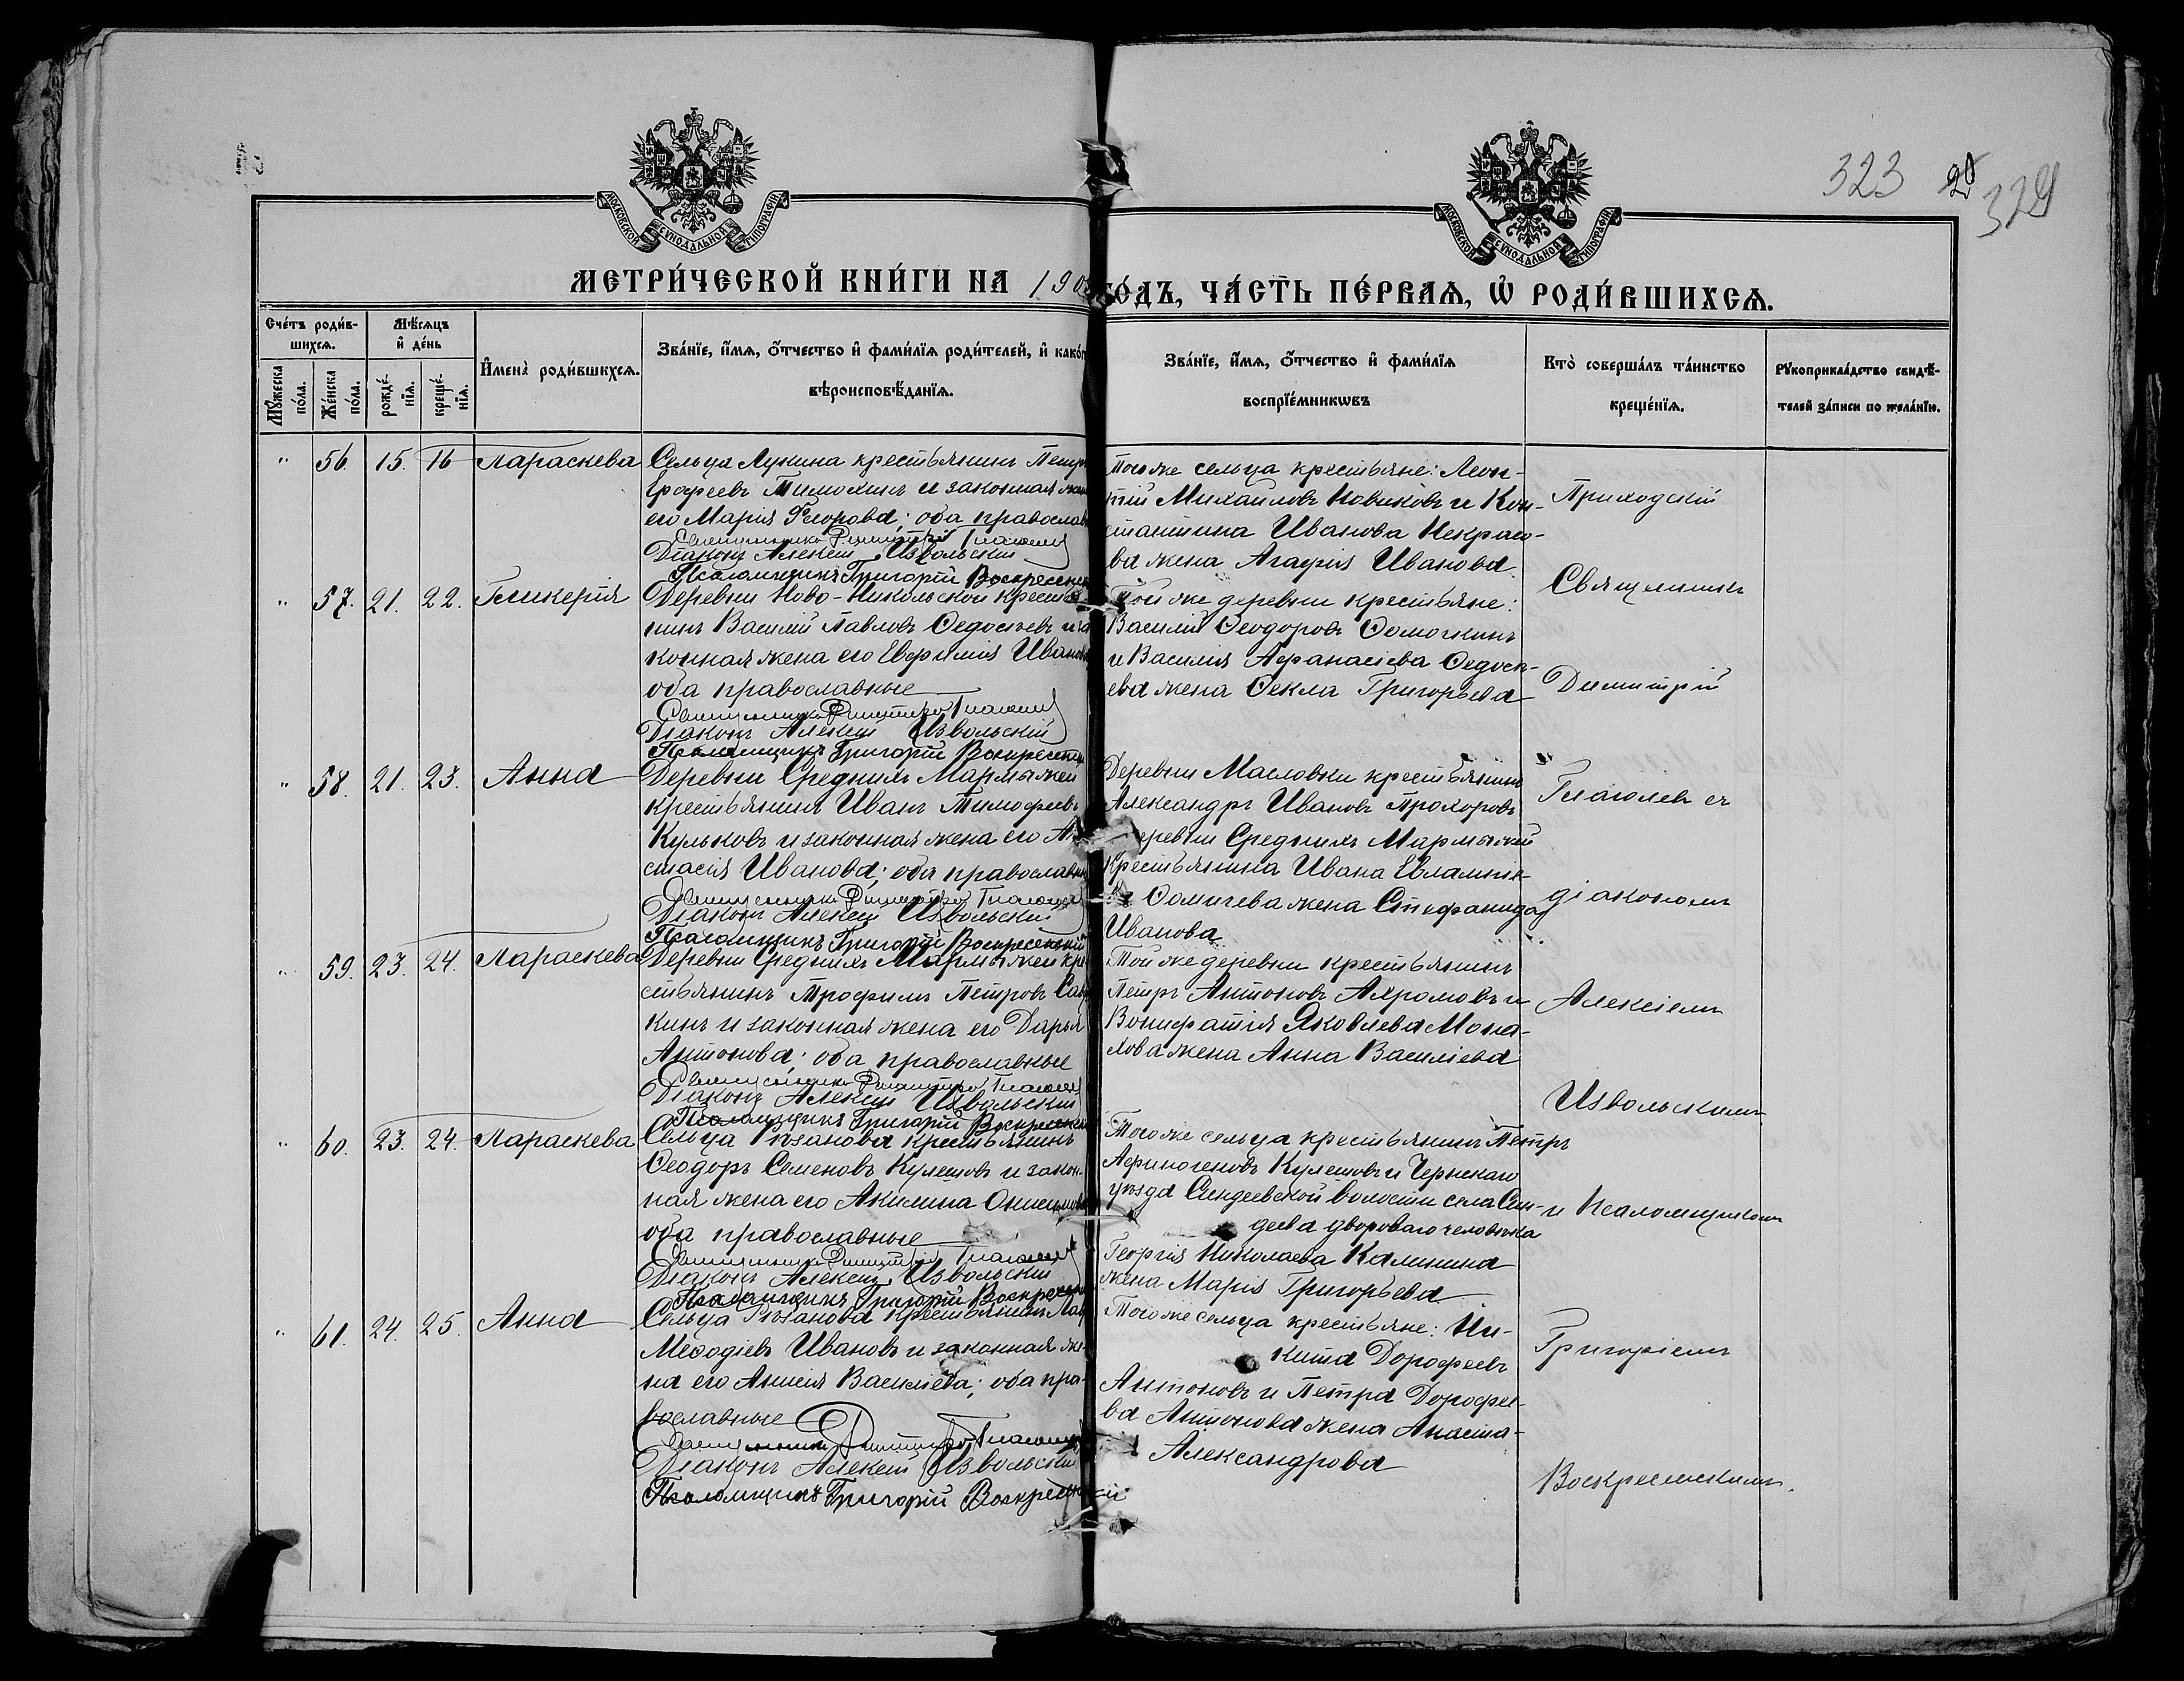 323 20 329
МОСКОВСКОЙ СѴНОДАЛЬНОЙ ТИПОГРАФІИ
МОСКОВСКОЙ СѴНОДАЛЬНОЙ ТИПОГРАФІИ
МЕТРИ́ЧЕСКОЙ КНИ́ГИ НА 190
ГО́ДЪ, ЧА́СТЬ ПЕ́РВАЯ, Ѡ҆ РОДИ́ВШИХСЯ.
Сче́тъ роди́в-
шихся.
Мѣ́сяцъ
и҆ де́нь
Му́жеска по́ла.
Же́нска по́ла.
рожде́-
нїя.
креще́-
нїя.
И҆мена̀ роди́вшихся.
Зва́нїе, и҆́мя, ѻ҆́тчество и҆ фами́лїя роди́телей, и҆ како́г
вѣроисповѣ́данїя.
Зва́нїе, и҆́мя, ѻ҆́тчество и҆ фами́лїя
воспрїе́мникѡвъ
Кто̀ соверша́лъ та́инство
креще́нїя.
Рукоприкла́дство свидѣ́-
телей за́писи по жела́нїю.
" 56. 15. 16 Параскева
Сельца Лукина крестьянинъ Петръ
Ерофеевъ Тимохинъ и законная жена
его Марія Ѳеорова; оба православ
Священникъ Димитрій Глаголевъ
Діаконъ Алексій Извольскій
Псаломщикъ Григорій Воскресенск
Того же сельца крестьяне: Леон-
тій Михайловъ Новиковъ и Кон-
стантина Иванова Некрасо-
ва жена Агафія Иванова.
" 57. 21. 22. Гликерія
Деревни Ново-Никольской крестья
нинъ Василій Павловъ Ѳедосѣевъ и за
конная жена его Евфимія Иванов
оба православные
Священникъ Димитрій Глаголевъ
Діаконъ Алексій Извольскій
Псаломщикъ Григорій Воскресенск
Той же деревни крестьяне:
Василій Ѳеодоровъ Ѳомочкинъ
и Василія Афанасіева Ѳедосѣ-
ева жена Ѳекла Григорьева
" 58. 21. 23. Анна
Деревни Среднихъ Мармыжей
крестьянинъ Иванъ Тимофеевъ
Кульковъ и законная жена его А
стасія Иванова; оба православны
Священникъ Димитрій Глаголевъ
Діаконъ Алексій Извольскій
Псаломщикъ Григорій Воскресенскій
Деревни Масловки крестьянинъ
Александръ Ивановъ Прохоровъ
деревни Среднихъ Мармыжей
крестьянина Ивана Евлампіе-
ва Ѳомичева жена Стефанида
Иванова
" 59. 23. 24. Параскева
Деревни Среднихъ Мармыжей кре
стьянинъ Трофимъ Петровъ Сав
кинъ и законная жена его Дарья
Антонова; оба православные
Священникъ Димитрій Глаголевъ
Діаконъ Алексій Извольскій
Псаломщикъ Григорій Воскресенск
Той же деревни крестьянинъ
Петръ Антоновъ Ахромовъ и
Вонифатія Яковлева Мона-
хова жена Анна Василіева
" 60. 23. 24. Параскева
Сельца Рѣзанова крестьянинъ
Ѳеодоръ Семеновъ Кулешовъ и закон-
ная жена его Акилина Онисимов
оба православные
Священникъ Димитрій Глаголевъ
Діаконъ Алексій Извольскій
Псаломщикъ Григорій Воскресенск
Того же сельца крестьянинъ Петръ
Афиногеновъ Кулешовъ и Чернскаго
уѣзда Синдеевской волости села Син-
деева двороваго человѣка
Георгія Николаева Калинина
жена Марія Григорьева
" 61. 24. 25. Анна
Сельца Рѣзанова крестьянинъ
Меѳодіевъ Ивановъ и законная же-
на его Анисія Василіева; оба пра-
вославные
Священникъ Димитрій Глаголевъ
Діаконъ Алексій Извольскій
Псаломщикъ Григорій Воскресенскій
Того же сельца крестьяне: Ни-
кита Дорофеевъ
Антоновъ и Петра Дорофее-
ва Антонова жена Анаста-
Александрова
Приходскій
Священникъ
Димитрій
Глаголевъ съ
діакономъ
Алексіемъ
Извольскимъ
и Псаломщикомъ
Григоріемъ
Воскресенскимъ.